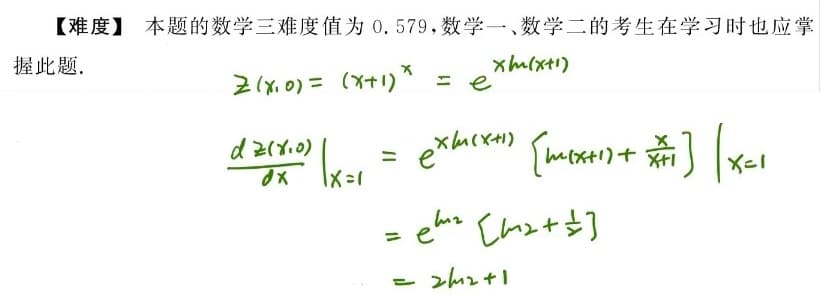 【难度】 本题的数学三难度值为 0.579,数学一、数学二的考生在学习时也应掌
握此题.
z(x,0) = (x+1)^x = e^{xln(x+1)}
dz(x,0)/dx |_{x=1} = e^{xln(x+1)} [ln(x+1) + x/(x+1)] |_{x=1}
= e^{ln2} [ln2 + 1/2]
= 2ln2+1